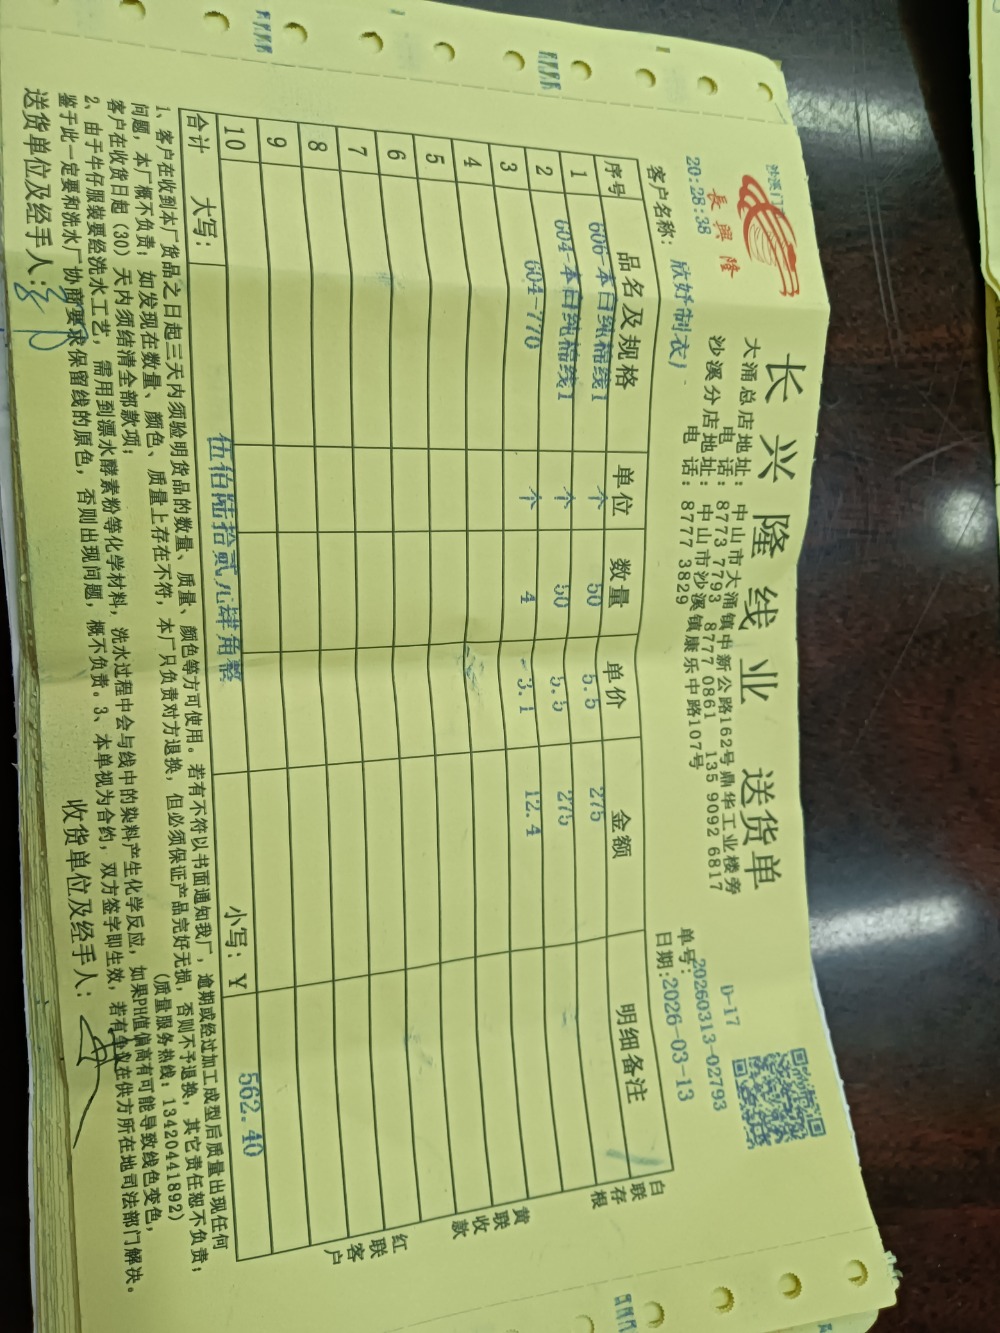 沙溪门
長興隆
20:28:38
长兴隆线业 送货单
大涌总店地址: 中山市大涌镇中新公路162号鼎华工业楼旁
电话: 8773 7793 8777 0861 135 9092 6817
沙溪分店地址: 中山市沙溪镇康乐中路107号
电话: 8777 3829
D-17
单号:20260313-02793
客户名称: 欣妤制衣厂
日期:2026-03-13
序号 品名及规格 单位 数量 单价 金额 明细备注
1 606-本白纯棉线1 个 50 5.5 275
2 604-本白纯棉线1 个 50 5.5 275
3 604-770 个 4 3.1 12.4
4
5
6
7
8
9
10
合计 大写: 伍佰陆拾贰元肆角整 小写: Y 562.40
白联存根
黄联收款
红联客户
1、客户在收到本厂货品之日起三天内须验明货品的数量、质量、颜色等方可使用。若有不符以书面通知我厂,逾期或经过加工成型后质量出现任何
问题,本厂概不负责;如发现在数量、颜色、质量上存在不符,本厂只负责对方退换,但必须保证产品完好无损,否则不予退换,其它责任恕不负责;
客户在收货日起(30)天内须结清全部款项; (质量服务热线:13420441892)
2、由于牛仔服装要经洗水工艺,需用到漂水酵素粉等化学材料,洗水过程中会与线中的染料产生化学反应,如果PH值偏高有可能导致线色变色,
鉴于此一定要和洗水厂协商要求保留线的原色,否则出现问题,概不负责。3、本单视为合约,双方签字即生效,若有争议在供方所在地司法部门解决。
送货单位及经手人: 收货单位及经手人: